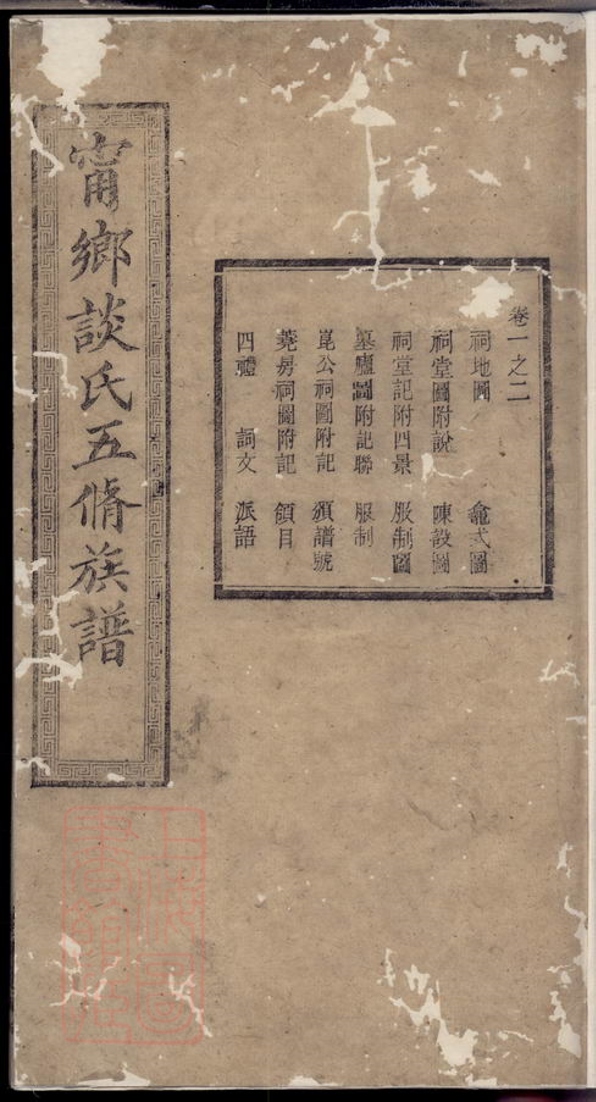 甯鄉談氏五脩族譜
卷一之二
祠地圖 龕式圖
祠堂圖附說 陳設圖
祠堂記附四景 服制圖
墓廬圖附記聯 服制
崑公祠圖附記 頒譜號
蕘房祠圖附記 領目
四禮 詞文 派語